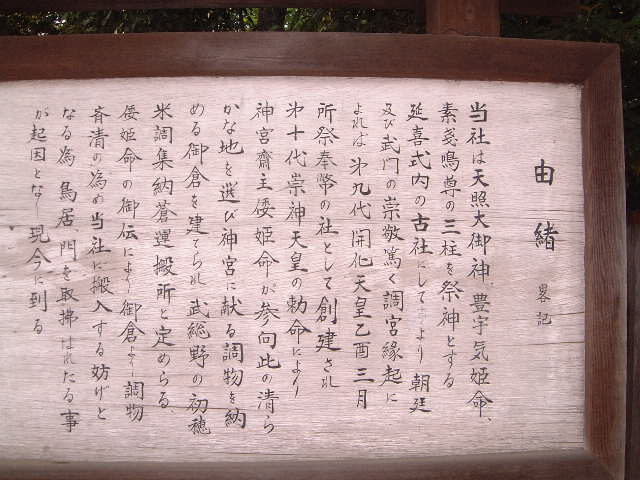 由緒 畧記
当社は天照大御神、豊宇気姫命、
素戔鳴尊の三柱を祭神とする
延喜式内の古社にして古より朝廷
及び武門の崇敬篤く調宮縁起に
よれば 第九代開化天皇乙酉三月
所祭奉幣の社として創建され
第十代崇神天皇の勅命により
神宮齋主倭姫命が参向此の清ら
かな地を選び神宮に献る調物を納
める御倉を建てられ 武総野の初穂
米調集納蒼運搬所と定めらる、
倭姫命の御伝により御倉より調物
斉清の為め当社に搬入する妨げと
なる為 鳥居、門を取拂はれたる事
が起因となり現今に到る